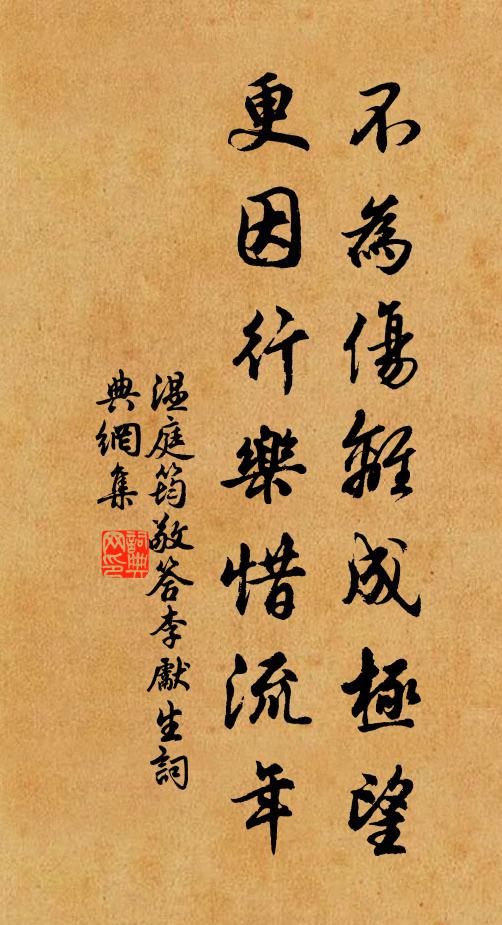 不為傷離成極望
更因行樂惜流年
溫庭筠敬答李獻生詞
典網集
詞典網印